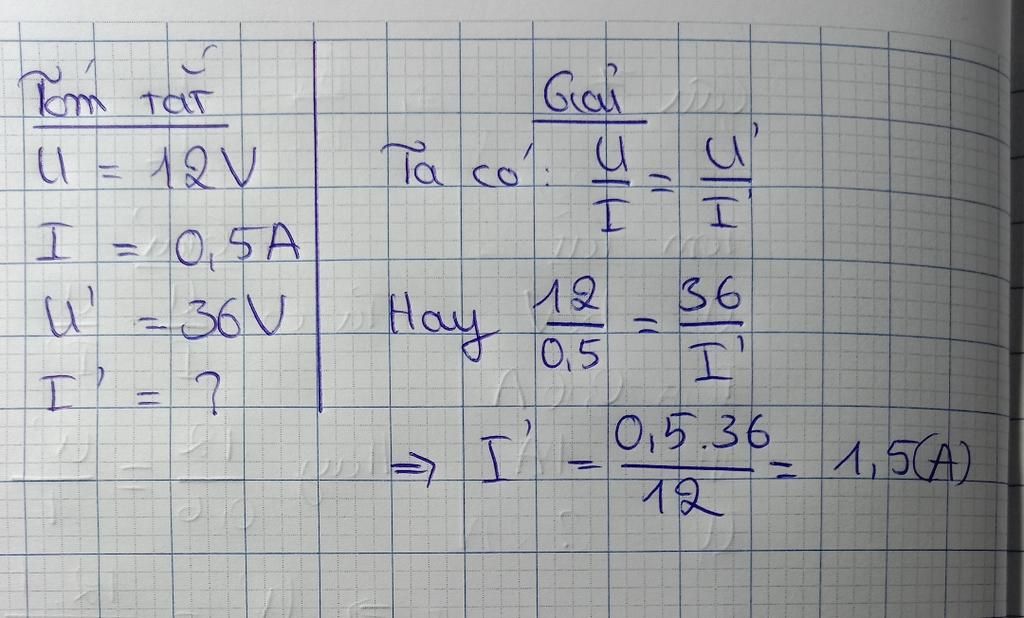 Tóm tắt
U = 12V
I = 0,5A
U' = 36V
I' = ?
Giải
Ta có: U/I = U'/I'
Hay 12/0,5 = 36/I'
=> I' = 0,5.36/12 = 1,5(A)